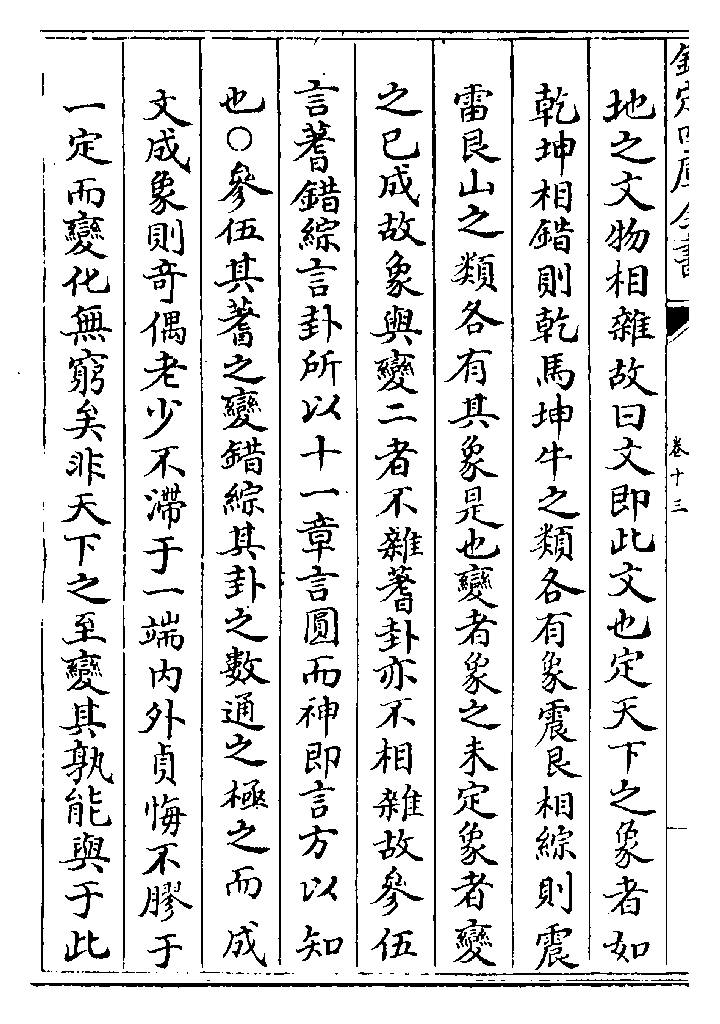 欽定四庫全書
卷十三
地之文物相雜故曰文即此文也定天下之象者如
乾坤相錯則乾馬坤牛之類各有象震艮相綜則震
雷艮山之類各有其象是也變者象之未定象者變
之已成故象與變二者不雜蓍卦亦不相雜故參伍
言蓍錯綜言卦所以十一章言圓而神即言方以知
也○參伍其蓍之變錯綜其卦之數通之極之而成
文成象則奇偶老少不滯于一端内外貞悔不膠于
一定而變化無窮矣非天下之至變其孰能與于此